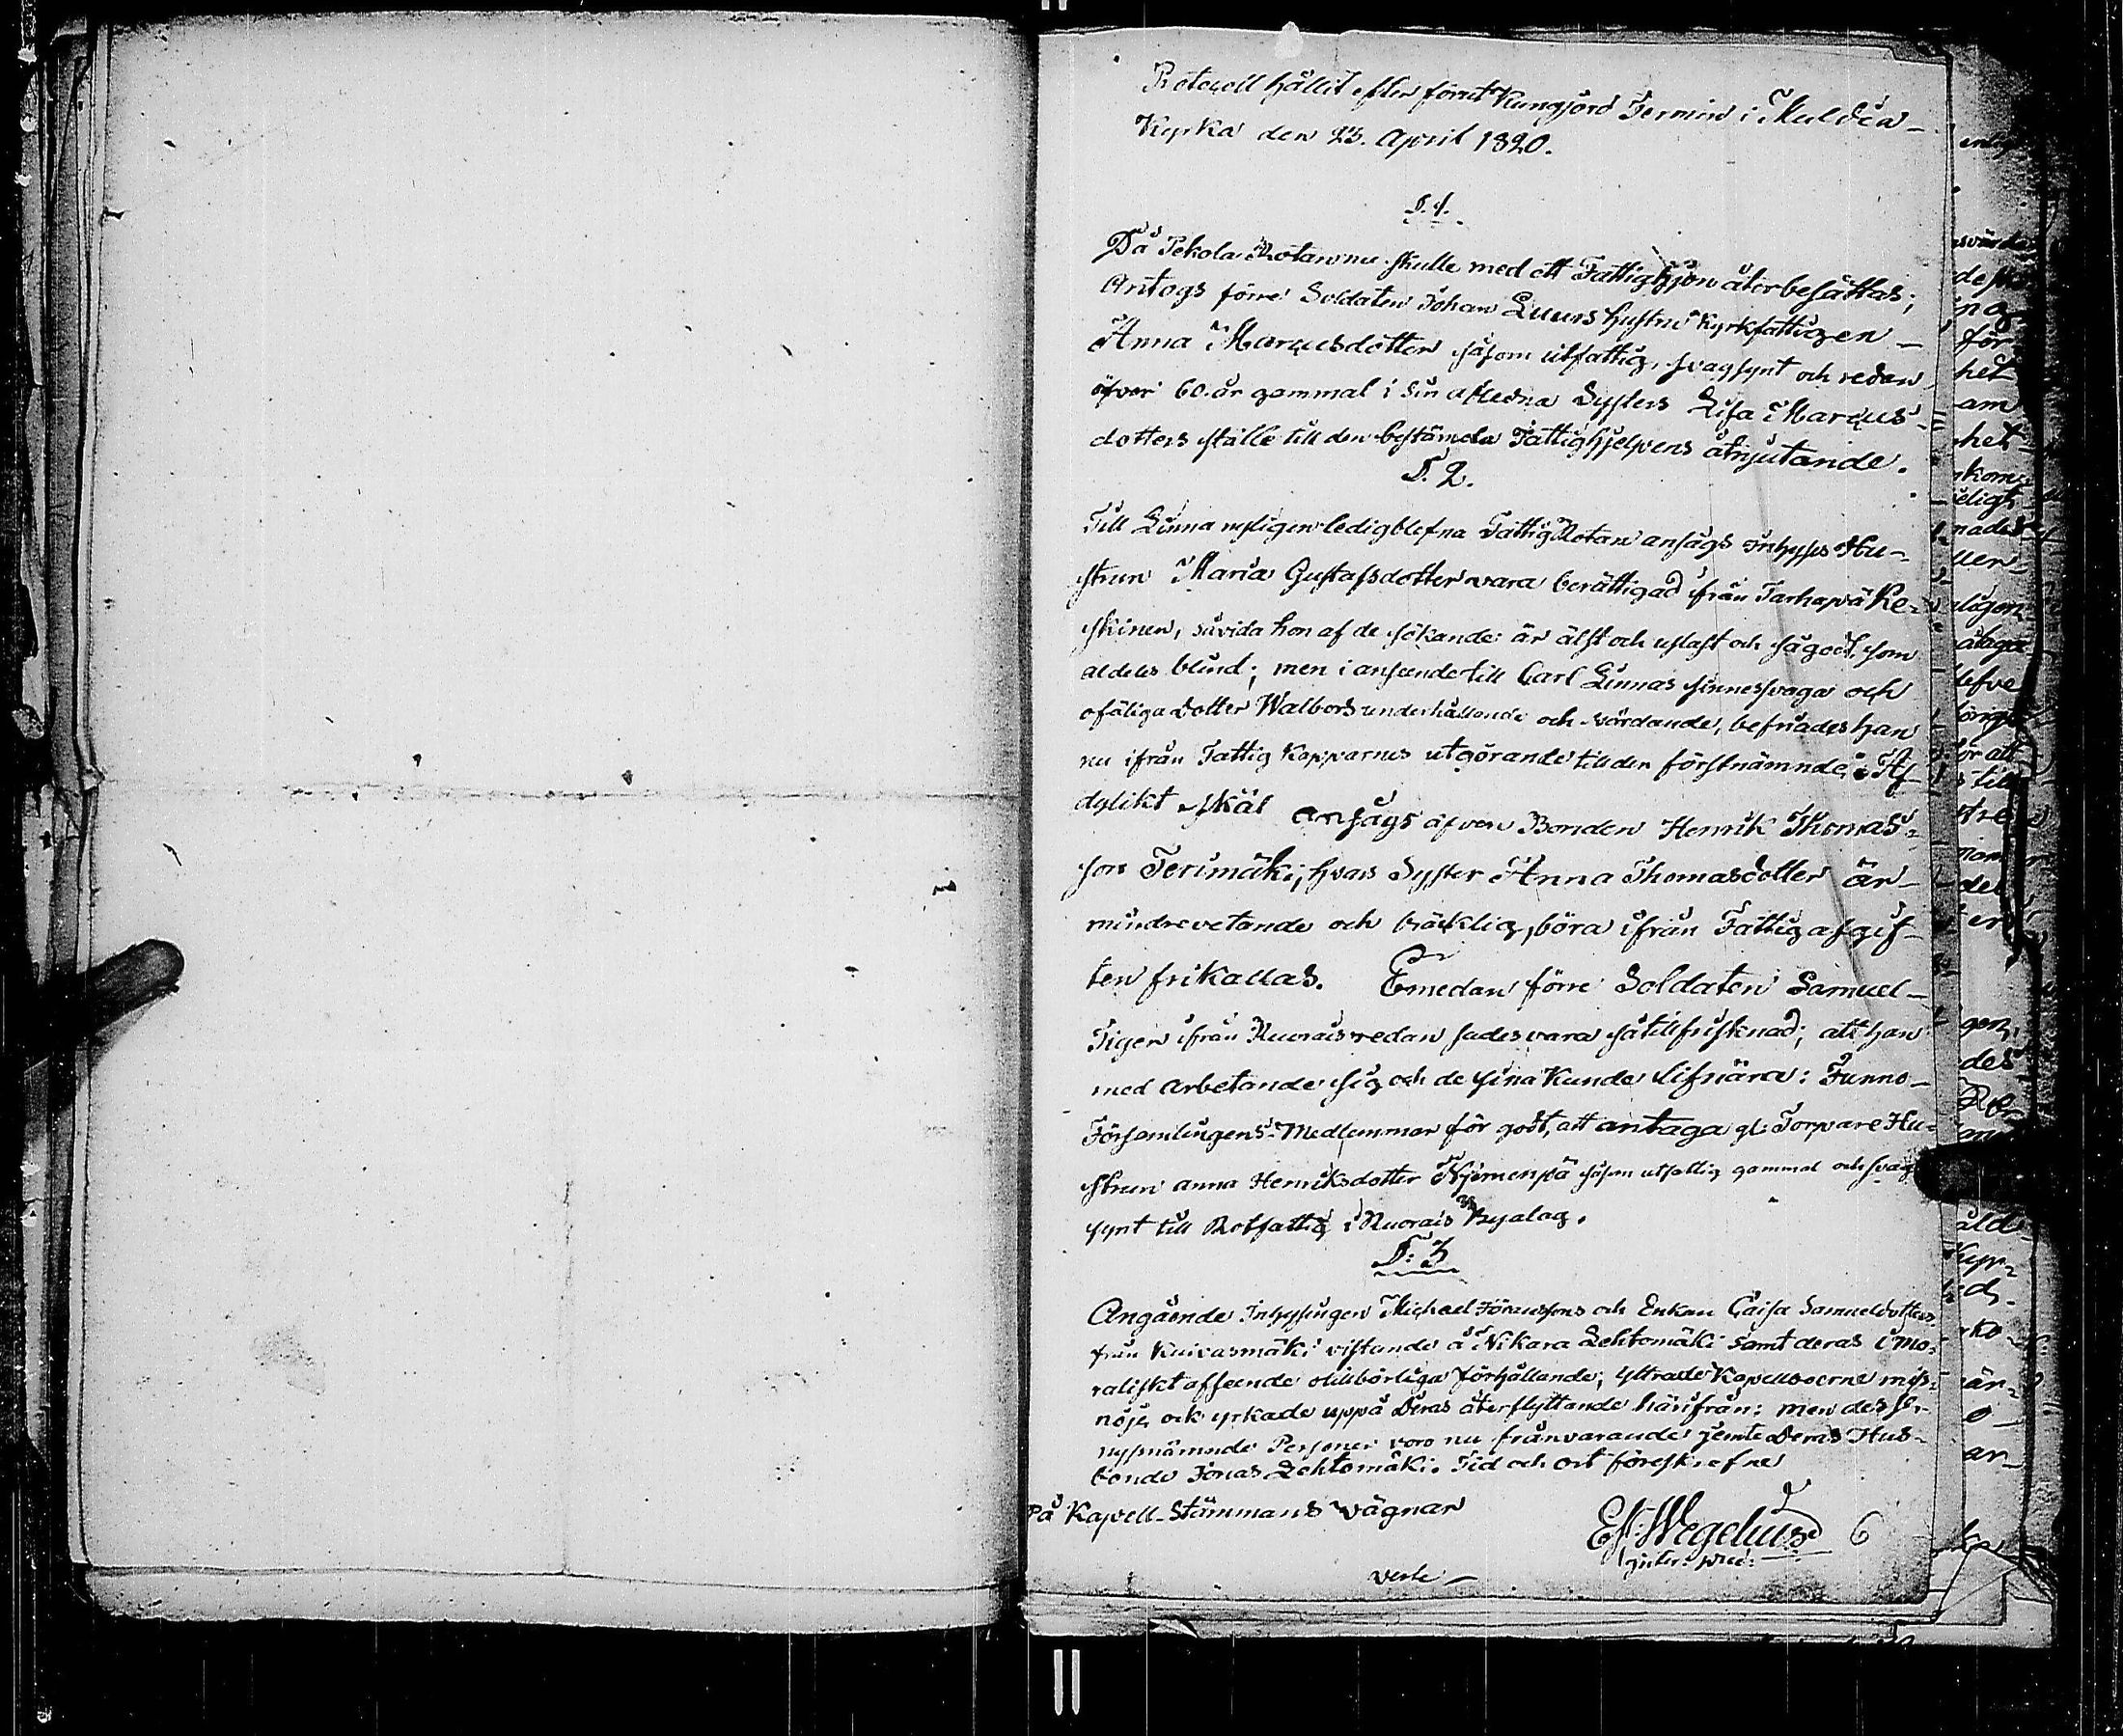 Protocoll hållit efter förut Kungjord Termin i Muldia
Kyrka den 23. April 1820.
§. 1.
Då Pekola Rotarna skulle med ett Fattighjon återbesättas;
Antogs förre Soldaten Johan Luurs hustru Kyrkfattigen
Anna Marcusdotter såsom utfattig, svagsynt och redan
öfver 60. år gammal i sin aflidna Systers Lisa Marcus-
dotters ställe till den bestämda Fattighjelpens åtnjutande.
§. 2.
Till Linna nyligen ledigblefna Fattig Rotan ansågs Inhyses Hu-
strun Maria Gustafsdotter vara berättigad från Tarhapä Ke-
skinen, såvida hon af de sökande är älst och uslast och så godt som
aldeles blind; men i anseende till Carl Linnas sinnessvaga och
ofäliga dotter Walbors underhållande och vårdande, befriades han
nu ifrån Fattig Kapparnes utgörande till den förstnämnde. Af
dylikt skäl ansågs äfven Bonden Henrik Thomas-
son Terimäki, hvars Syster Anna Thomasdotter är
mindre vetande och bräcklig, böra ifrån Fattigafgif-
ten frikallas. Emedan förre Soldaten Samuel
Tiger ifrån Ruorais redan sades vara så tillfrisknad; att han
med arbetande sig och de sina kunde lifnära: Funno
Församlingens Medlemmar för godt, att antaga gl: Torpare Hu-
strun Anna Henriksdotter Nyimenpä såsom utfattig gammal och svag
synt till Rotfattig i Ruorais Byalag.
§: 3
Angående Inhysingen Michael Göranssons och Enkan Caisa Samuelsdotters
från Kuivasmäki vistande å Nikara Lehtomäki samt deras i mo-
raliskt afseende otillbörliga förhållande; yttrade Kapellboerne miss-
nöje och yrkade uppå Deras återflyttande härifrån: men desse
nyssnämnde Personer voro nu frånvarande jemte Deras Hus-
bonde Jonas Lehtomäki. Tid och ort föreskrefne
På Kapell-Stämmans vägnar
Es. Wegelius 6
verte